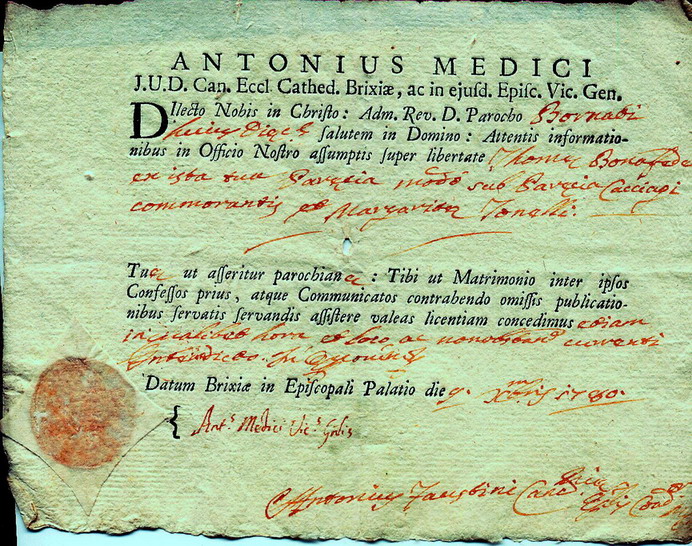 ANTONIUS MEDICI
J.U.D. Can. Eccl. Cathed. Brixiæ, ac in ejusd. Episc. Vic. Gen.
DIlecto Nobis in Christo: Adm. Rev. D. Parocho Bornati
salutem in Domino: Attentis informatio-
nibus in Officio Nostro assumptis super libertate Bonafede
ex ista tua modò sub
commorantis et Margaritæ Tonelli.
Tuæ ut asseritur parochianæ: Tibi ut Matrimonio inter ipsos
Confessos prius, atque Communicatos contrahendo omissis publicatio-
nibus servatis servandis assistere valeas licentiam concedimus etiam
in qualibet hora et loco, ac non
Datum Brixiæ in Episcopali Palatio die 9. Xbris 1780.
Ant.s Medici Vic.s Gnlis
Antonius Faustini Canc.